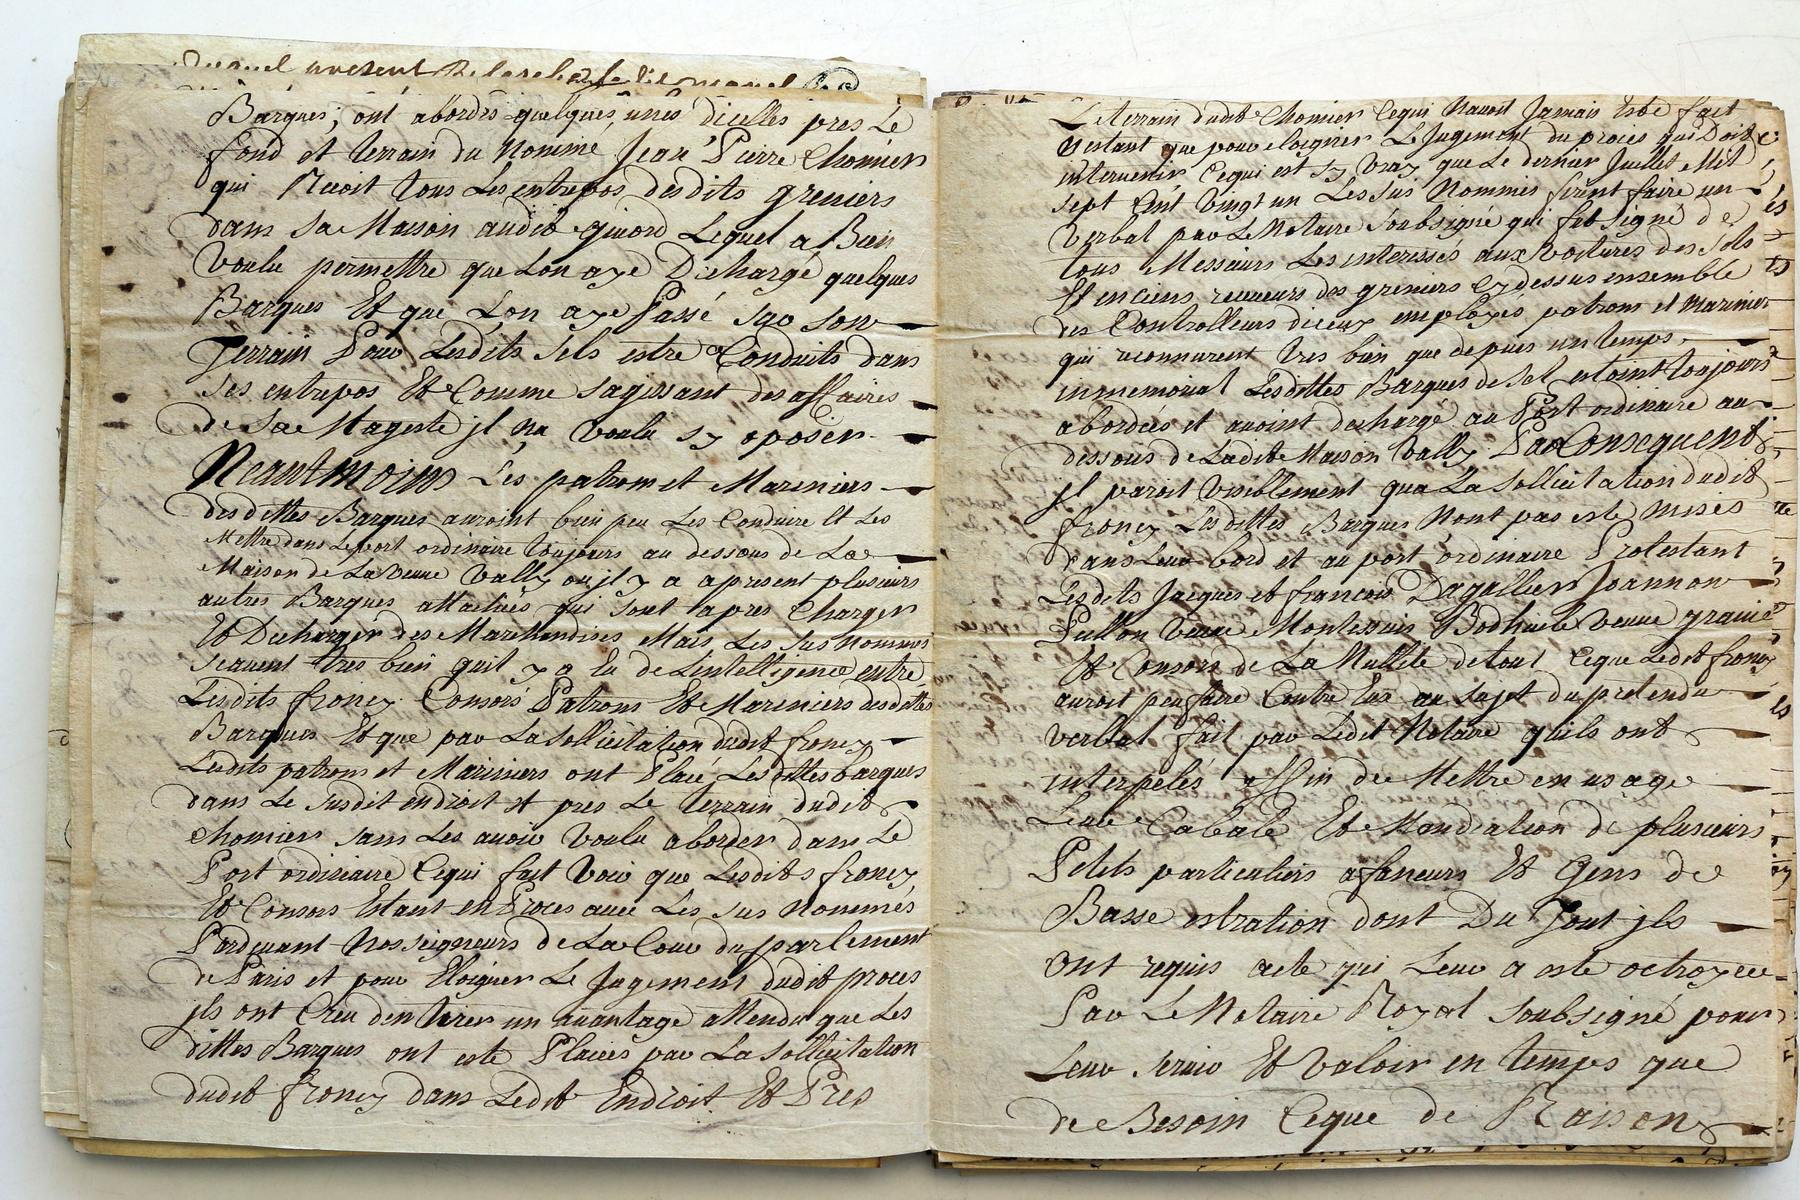 Barques, ont abordés quelques unes dicelles pres Le
fond et terrain du Nommé Jean Pierre Chomier
qui Recoit tous Les entrepos desdits greniers
dans sa Maison audit givord Lequel a Bien
Voulu permettre que Lon aye Dechargé quelques
Barques Et que Lon aye Passé sur son
Terrain Pour Lesdits sels estre Conduits dans
ses entrepos Et Comme sagissant des affaires
de sa Mageste jl na voulu sy oposer
Neantmoins Les patrons et Mariniers
desdittes Barques auroint bien peu Les Conduire Et Les
Mettre dans Le port ordinaire toujours au dessous de La
Maison de La veuve Vally ou jl y a apresent plusieurs
autres Barques attachées qui sont apres Charger
Et Decharger des Marchandises Mais Les sus Nommés
scavent tres bien quil y a Eu de Lintelligence entre
Lesdits froncy Consors Patrons Et Mariniers desdittes
Barques Et que par La sollicitation dudit froncy
Lesdits patrons et Mariniers ont Placé Lesdittes barques
dans Le susdit endroit et pres Le terrain dudit
Chomier sans Les avoir voulu aborder dans Le
Port ordinaire Cequi fait voir que Lesdits froncy
Et Consors Estant en Proces avec Les sus Nommés
Pardevant Nosseigneurs de La Cour du parlement
de Paris et pour Eloigner Le Jugement dudit proces
jls ont Creu den tirer un avantage attendu que Les
dittes Barques ont esté Placées par La sollicitation
dudit froncy dans Ledit Endroit Et Pres
Le terrain dudit Chomier Cequi Navoit Jamais Esté fait
Nestant que pour eloigner Le Jugement du proces qui Doit
intervenir Cequi est sy vray que Le dernier Juillet Mil
sept Cent Vingt un Les sus Nommés firent faire un
Verbal par Le Notaire soubsigné qui fut signé de
tous Messieurs Les interessés aux Voitures des sels
Et enciens receveurs des greniers Cy dessus ensemble
des Controlleurs diceux employés, patrons et mariniers
qui reconnurent tres bien que depuis un temps
inmemorial Lesdittes Barques de sel estoint toujours
abordées et avoint dechargé au Port ordinaire au
dessous de Ladite Maison Vally Par Consequent
jl paroit visiblement qua La sollicitation dudit
froncy Lesdittes Barques Nont pas esté mises
dans Leur bord et au port ordinaire Protestant
Lesdits Jacques et francois Dagallier Joannon
Pullon veuve Montessuis Bodhuile veuve
Et Consors de La Nullité de tout Ceque Ledit froncy
auroit peu faire Contre Eux au sujet du pretendu
verbal fait par Ledit Notaire quils ont
interpelés affin de Mettre en usage
Leur Cabale Et de plusieurs
Petits particuliers afaneurs Et Gens de
Basse dont Du Tout jls
ont requis acte qui Leur a esté octroyee
Par Le Notaire Royal soubsigné pour
Leur servir Et valoir en temps que
de Besoin Ceque de Raison